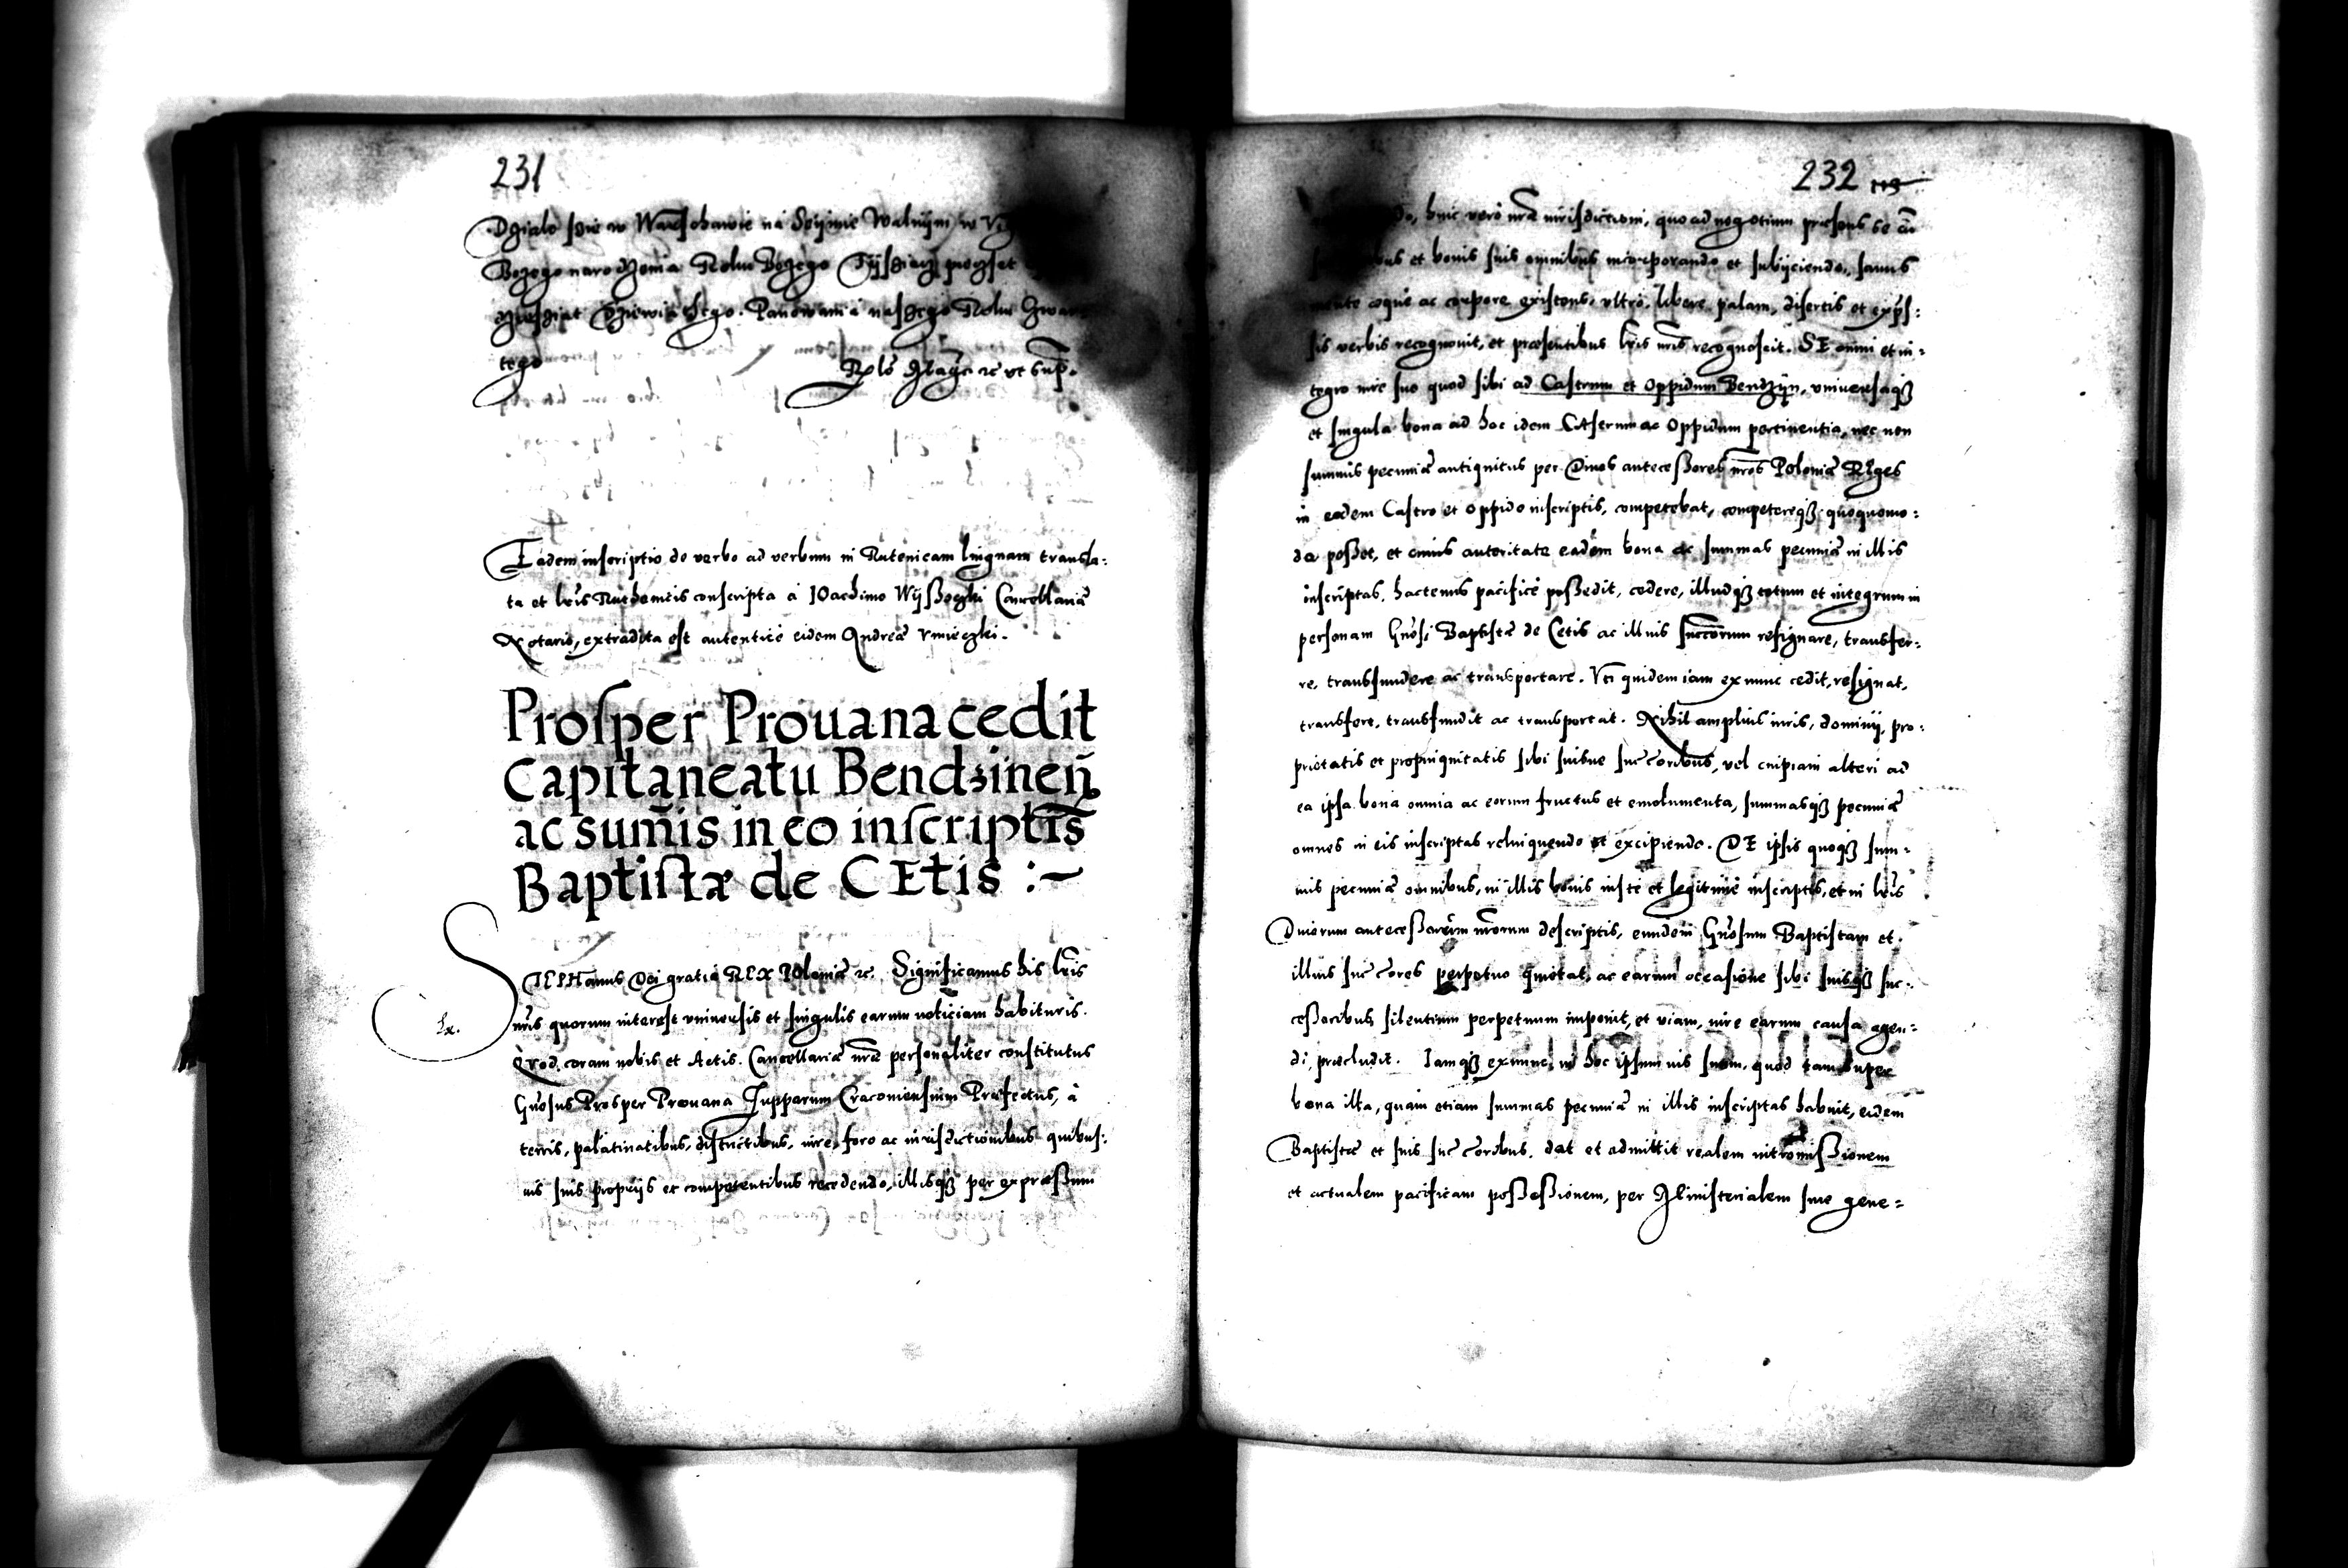 231
Dzialo szie w Warschawie na Seijmie Walnijm w
Bozego narodzenia Roku Bozego Tijsziacz piecszet
dziewiathego. Panowania naszego Roku Czwar
tego
Rls Mag ac vt sup.
Eadem inscriptio de verbo ad verbum in Rutenicam linguam transla:
ta et lris Ruthenicis conscripta a IOachimo Wijßoczki Cancellariæ
Notario, extradita est autentice eidem Andreæ Vmieczki.
Prosper Prouana cedit
Capitaneatu Bendzineñ
ac sum̃is in eo inscriptis
Baptistæ de CEtis :~
STEPHanus Dei gratia REX POloniæ ac. Significamus his lris
nris quorum interest vniuersis et singulis earum noticiam habituris.
Quod coram nobis et Actis Cancellariæ nræ personaliter constitutus
Gnosus Prosper Prouana Zupparum Cracouiensium Præfectus, à
terris, palatinatibus, districtibus, iure, foro ac iurisdictionibus quibus:
uis suis proprijs et competentibus recedendo, illisqȝ per expræßum
232
do, huic vero nræ iurisdictioni, quo ad negotium præsens se cũ
bus et bonis suis omnibus incorporando et subijciendo, sanus
mente æque ac corpore existens, vltro, libere, palam, disertis et expræs:
sis verbis recognouit, et præsentibus lris nris recognoscit. SE omni et in:
tegro iure suo quod sibi ad Castrum et Oppidum Bendzijn, vniuersaqȝ
et singula bona ad hoc idem CAstrum ac Oppidum pertinentia, nec non
summis pecuniæ antiquitus per Diuos anteceßores nros Poloniæ REges
in eodem Castro et Oppido inscriptis, competebat, competereqȝ quoquomo:
do poßet, et cuius autoritate eadem bona ac summas pecuniæ in illis
inscriptas, hactenus pacifice poßedit, cedere, illudqȝ totum et integrum in
personam Gnosi Baptistæ de Cetis ac illius succorum resignare, transfer:
re, transfundere ac transportare. Vti quidem iam ex nunc cedit, resignat,
transfert, transfundit ac transportat. Nihil amplius iuris, dominij, pro:
prietatis et propinquitatis sibi suisue succoribus, vel cuipiam alteri ad
ea ipsa bona omnia ac eorum fructus et emolumenta, summasqȝ pecuniæ
omnes in eis inscriptas relinquendo et excipiendo. DE ipsis quoqȝ sum:
mis pecuniæ omnibus, in illis bonis iuste et legitime inscriptis, et in lris
Diuorum anteceßorum nrorum descriptis, eundem Gnosum Baptistam et
illius succores perpetuo quietat, ac earum occasione sibi suisqȝ suc:
ceßoribus silentium perpetuum imponit, et viam, iure earum causa agen:
di, præcludit. Iamqȝ ex nunc, in hoc ipsum ius suum, quod tam super
bona illa, quam etiam summas pecuniæ in illis inscriptas habuit, eidem
Baptistæ et suis succoribus, dat et admittit realem intromißionem
et actualem pacificam poßeßionem, per Ministerialem siue gene=